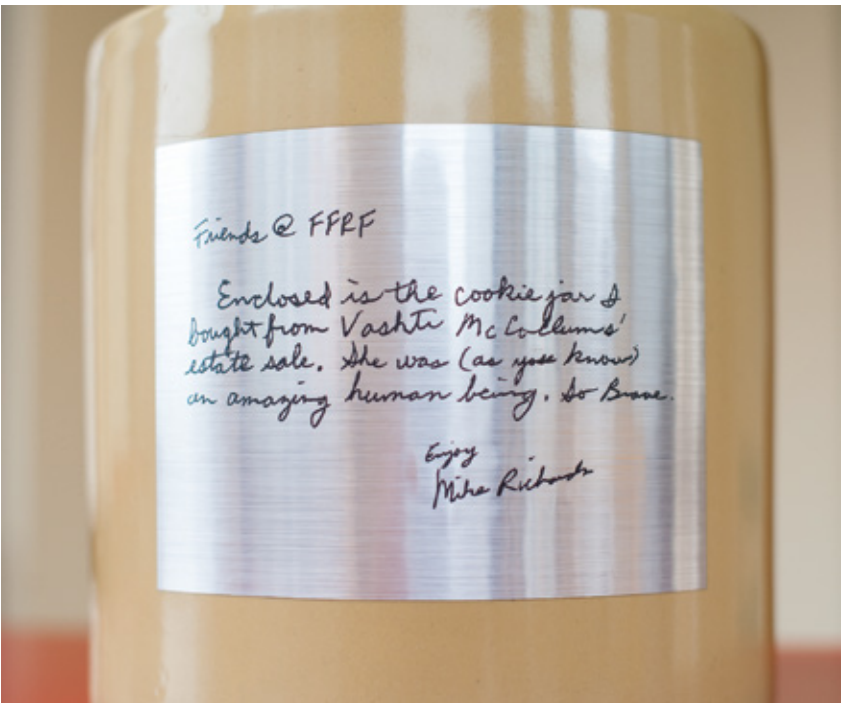 Friends @ FFRF
Enclosed is the cookie jar I
bought from Vashti McCollums'
estate sale. She was (as you know)
an amazing human being. So Brave.
Enjoy
Mike Richards